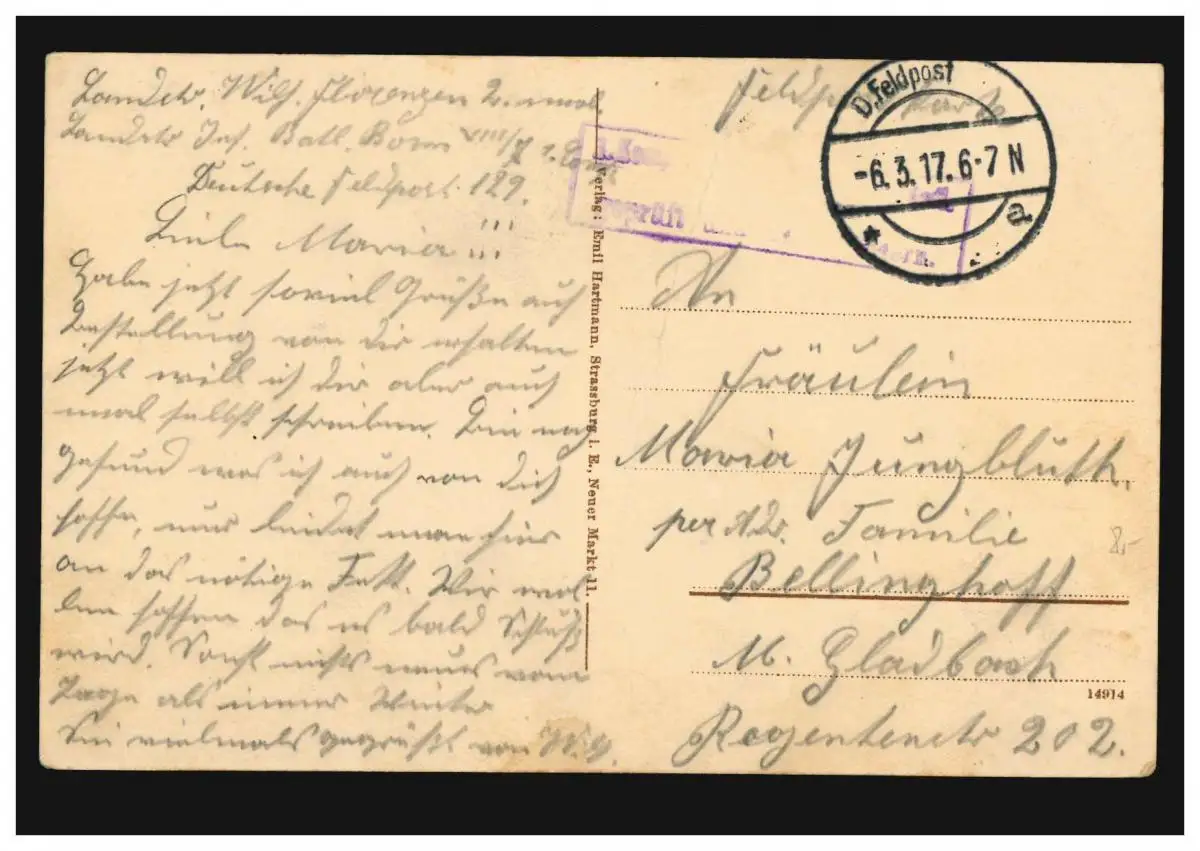 Landstr. Wilh. Florenzen 2.
Landstr Inf. Batl. Bonn VIII/7 1. Comp
Deutsche Feldpost 129.
Liebe Maria!!!
Habe jetzt soviel Grüße auf
Bestellung von dir erhalten
jetzt will ich dir aber auch
mal selbst schreiben. Bin noch
gesund was ich auch von dich
hoffe, nur leidet man hier
an das nötige Fett. Wir wol-
len hoffen das es bald Schluß
wird. Sonst nichts neues vom
Tage als immer Winter
Sei vielmals gegrüßt von W. F.
Verlag: Emil Hartmann, Strassburg i. E., Neuer Markt 11.
Feldpostkarte
D. Feldpost
-6.3.17. 6-7 N
* a
geprüft
An
Fräulein
Maria Jungbluth.
per Adr. Familie
Bellinghoff
M. Gladbach
Regentenstr 202.
14914
8,-